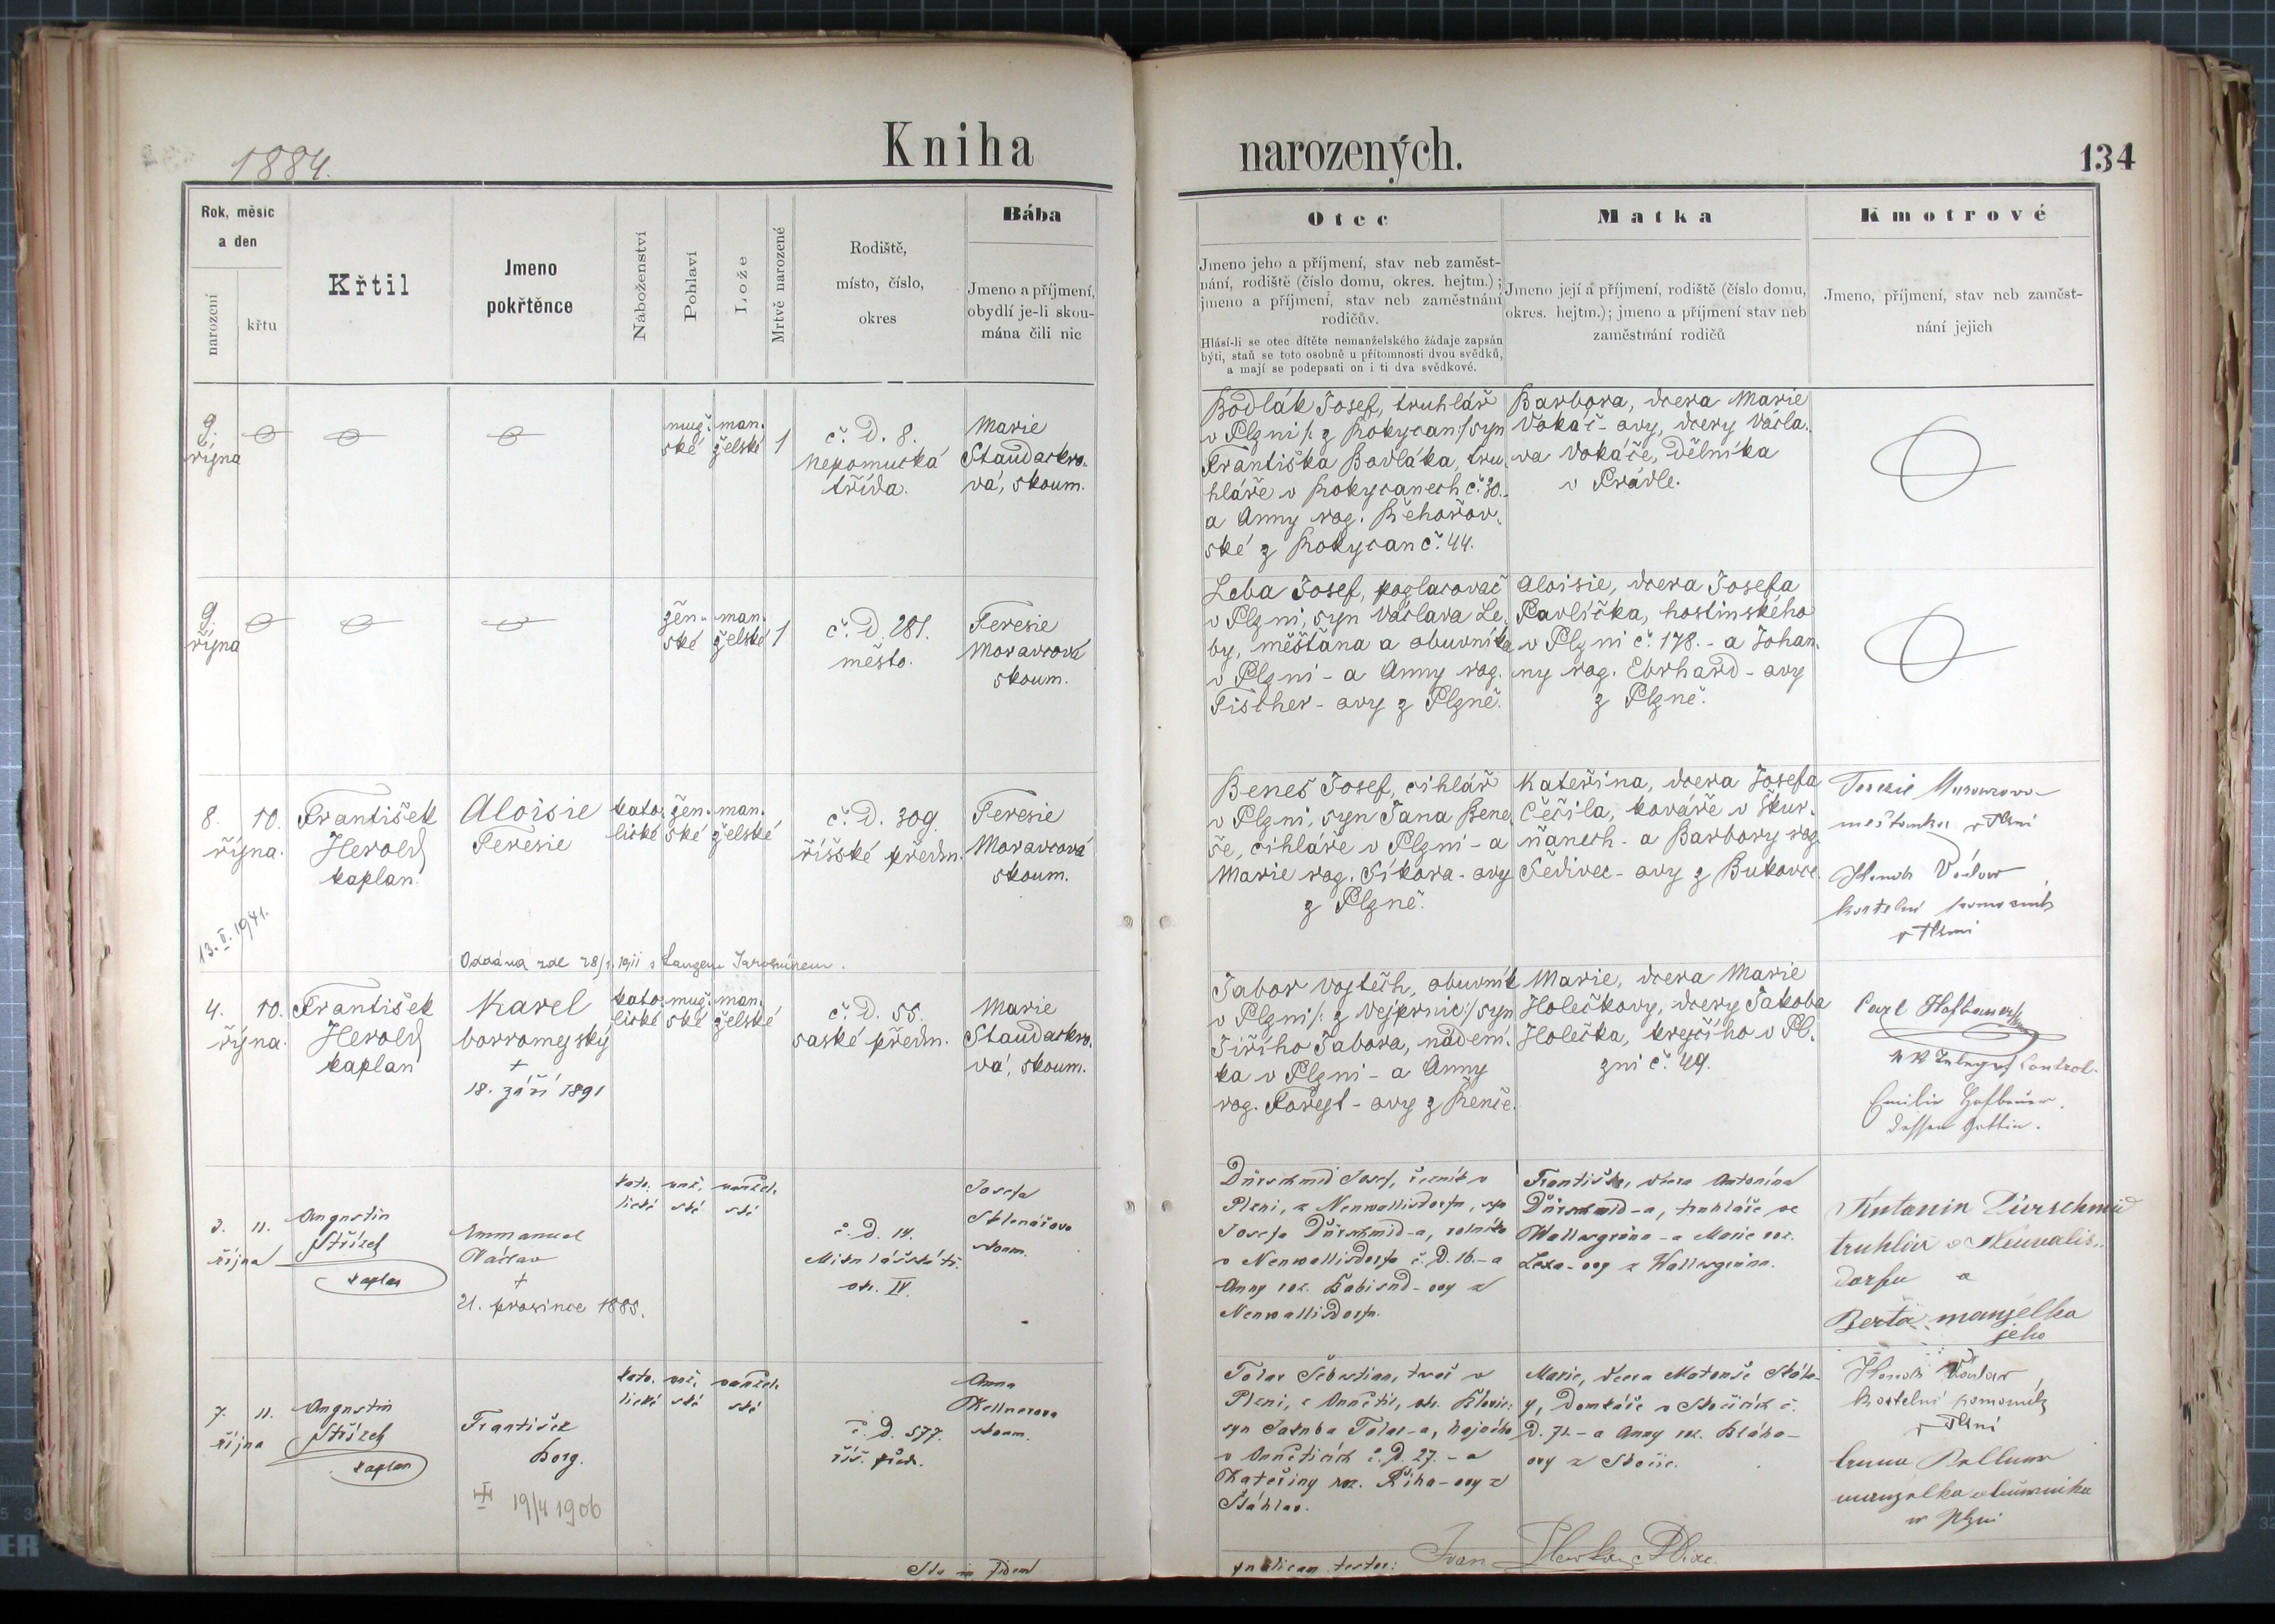 1884.
Kniha narozených.
134
Rok, měsíc
a den
narození
křtu
Křtil
Jmeno
pokřtěnce
Náboženství
Pohlaví
Lože
Mrtvě narozené
Rodiště,
místo, číslo,
okres
Bába
Jmeno a příjmení,
obydlí je-li skou-
mána čili nic
Otec
Jmeno jeho a příjmení, stav neb zaměst-
nání, rodiště (číslo domu, okres. hejtm.);
jmeno a příjmení, stav neb zaměstnání
rodičův.
Hlásí-li se otec dítěte nemanželského žádaje zapsán
býti, staň se toto osobně u přítomnosti dvou svědků,
a mají se podepsati on i ti dva svědkové.
Matka
Jmeno její a příjmení, rodiště (číslo domu,
okres. hejtm.); jmeno a příjmení stav neb
zaměstnání rodičů
Kmotrové
Jmeno, příjmení, stav neb zaměst-
nání jejich
9.
října
muž.
ské
man.
želské
1
č. D. 8.
Nepomucká
třída.
Marie
Staudackro.
vá, skoum.
Bodlák Josef, truhlář
v Plzni /: z Rokycan :/ syn
Františka Bodláka, tru.
hláře v Rokycanech č. 30.
a Anny roz. Řehořov.
ské z Rokycan č. 44.
Barbora, dcera Marie
Vokáč-ovy, dcery Václa.
va Vokáče, dělníka
v Prádle.
9.
října
žen.
ské
man.
želské
1
č. D. 281.
město.
Teresie
Moravcová
skoum.
Leba Josef, pozlacovač
v Plzni, syn Václava Le.
by, měšťana a obuvníka
v Plzni - a Anny roz.
Fischer - ovy z Plzně.
Aloisie, dcera Josefa
Pavlíčka, hostinského
v Plzni č. 178. - a Johan.
ny roz. Ebrhard - ovy
z Plzně.
8. 10.
října.
František
Herold
kaplan.
Aloisie
Teresie
kato.
lické
žen.
ské
man.
želské
č. D. 309.
říšské předm.
Teresie
Moravcová
skoum.
Beneš Josef, cihlář
v Plzni, syn Jana Bene
še, cihláře v Plzni - a
Marie roz. Síkora - ovy
z Plzně.
Kateřina, dcera Josefa
Čéčila, kováře v Škur.
ňanech - a Barbory roz.
Šedivec - ovy z Bukovce.
Terezie
měšťanka v Plzni
kostelní pomocník
v Plzni
13. II. 1941.
Oddána zde 28/1. 1911 s
4. 10.
října.
František
Herold
kaplan
Karel
borromejský
+
18. září 1891
kato.
lické
muž.
ské
man.
želské
č. D. 55.
saské předm.
Marie
Staudackro.
vá, skoum.
Tabor Vojtěch, obuvník
v Plzni /: z Vejprnic :/ syn
Jiřího Tabora, nádení.
ka v Plzni - a Anny
roz. Forejt - ovy z Řenče.
Marie, dcera Marie
Holečkovy, dcery Jakoba
Holečka, krejčího v Pl.
zni č. 49.
Carl Hofbauer
KK Telegraf Control.
Emilie Hofbauer
dessen Gattin.
3. 11.
října
Augustin
Střízek
kaplan
Emmanuel
Václav
+
21. prosince 1885.
kato.
lické
muž.
ské
manžel.
ské
č. D. 14.
Mikulášská tř.
okr. IV.
Josefa
Sklenářova
skoum.
Dürschmid Josef, řezník v
Plzni, z Neuwallisdorfu, syn
Josefa Dürschmid-a, rolníka
v Neuwallisdorfu č. D. 16. - a
Anny roz. - ovy z
Neuwallisdorfu.
Františka, dcera Antonína
Dürschmid-a, truhláře ve
Wallisgrünu - a Marie roz.
Lexa - ovy z Wallisgrünu.
Antonin Dürschmid
truhlář v Neuwalis..
dorfu a
Berta manželka
jeho
7. 11.
října
Augustin
Střízek
kaplan
František
Borg.
19/4 1906
kato.
lické
muž.
ské
manžel.
ské
č. D. 577.
říš. předm.
Anna
Kellnerova
skoum.
Tolar Šebestian, tkač v
Plzni, z
syn Jakuba Tolar-a, hajného
v č. D. 27. - a
Kateřiny roz. Říha - ovy z
Šťáhlav.
Marie, dcera Matouše
y, domkáře v Stočicích č.
D. 72 - a Anny roz. Bláho-
ovy z
kostelní pomocník
v Plzni
manželka obuvníka
w Plzni
In fidem
publicam testor: